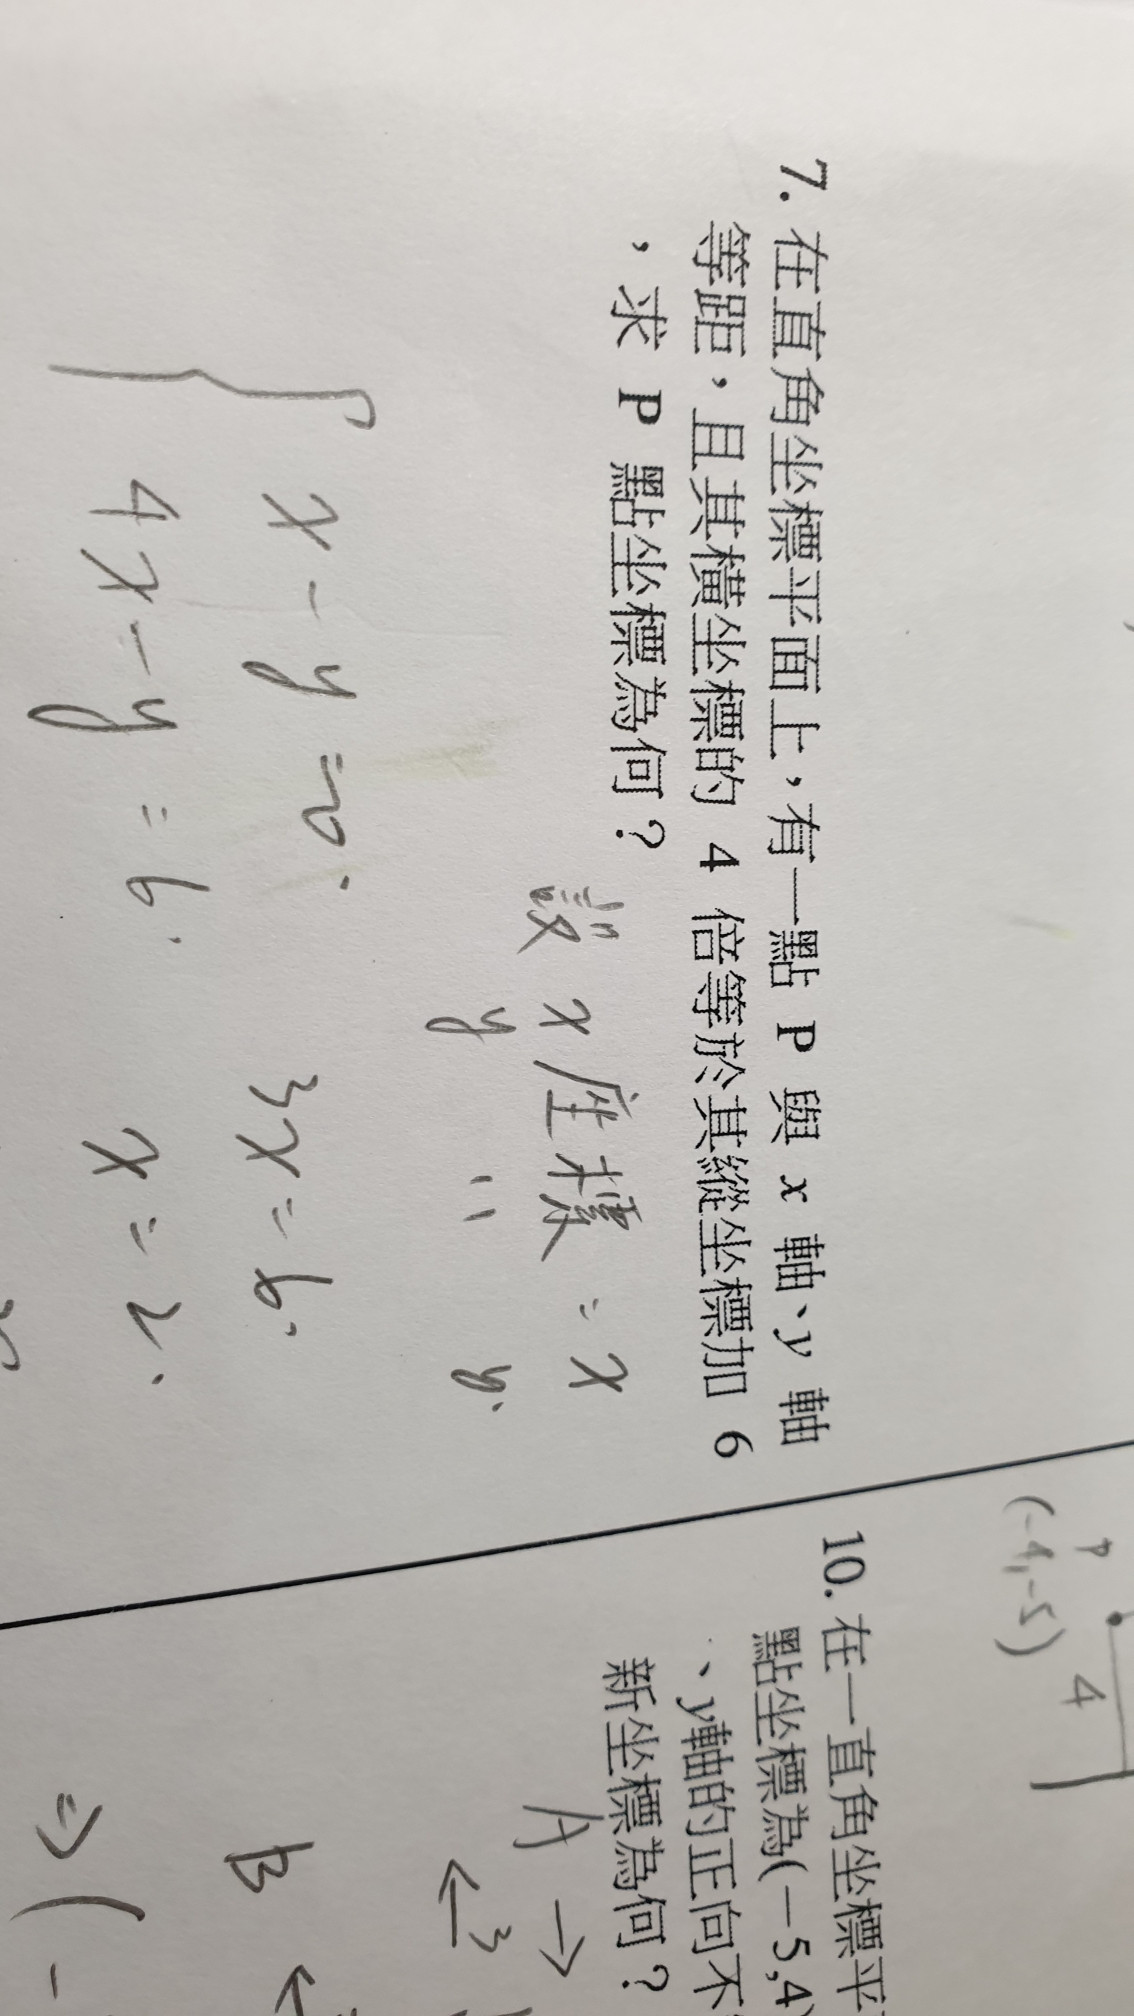 7. 在直角坐標平面上，有一點 P 與 x 軸、y 軸
等距，且其橫坐標的 4 倍等於其縱坐標加 6
，求 P 點坐標為何？
設 x座標 = x
y 〃 y.
x - y = 0.
4x - y = 6.
3x = 6.
x = 2.
P
(-4,-5)
4
10. 在一直角坐標平
點坐標為(－5,4)
、y軸的正向不
新坐標為何？
A →
← 3
B
⇒ ( -